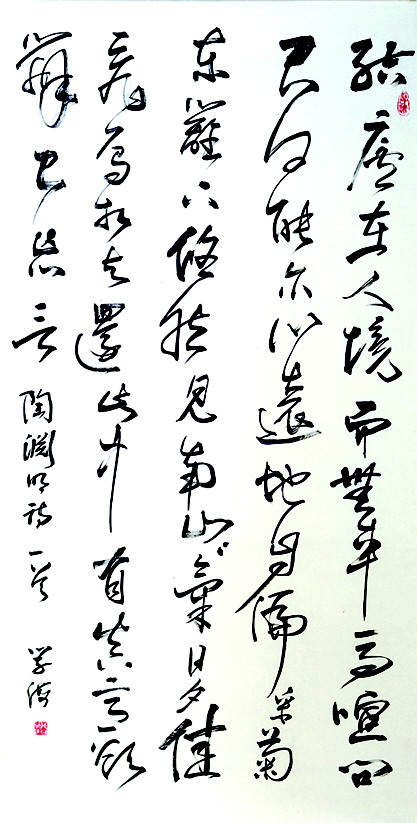 結廬在人境而無車馬喧問
君何能尔心遠地自偏采菊
東籬下悠然見南山〻氣日夕佳
飛鳥相与還此中有真意欲
辨已忘言 陶淵明詩一首